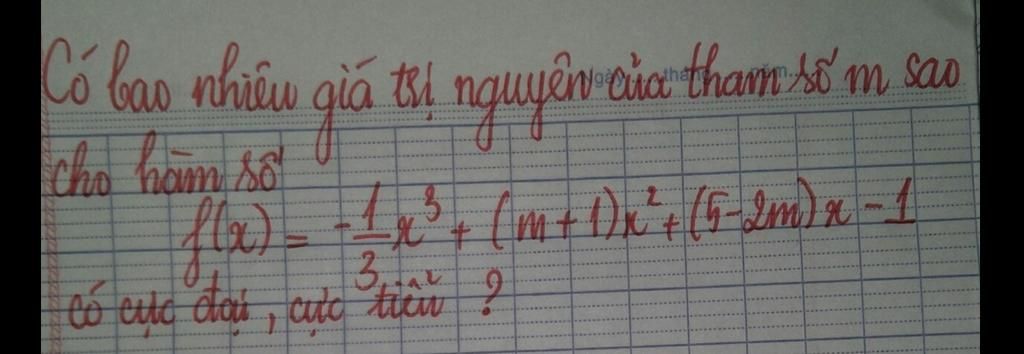 Có bao nhiêu giá trị nguyên của tham số m sao
cho hàm số
f(x) = -\frac{1}{3}x^3 + (m+1)x^2 + (5-2m)x - 1
có cực đại, cực tiểu ?